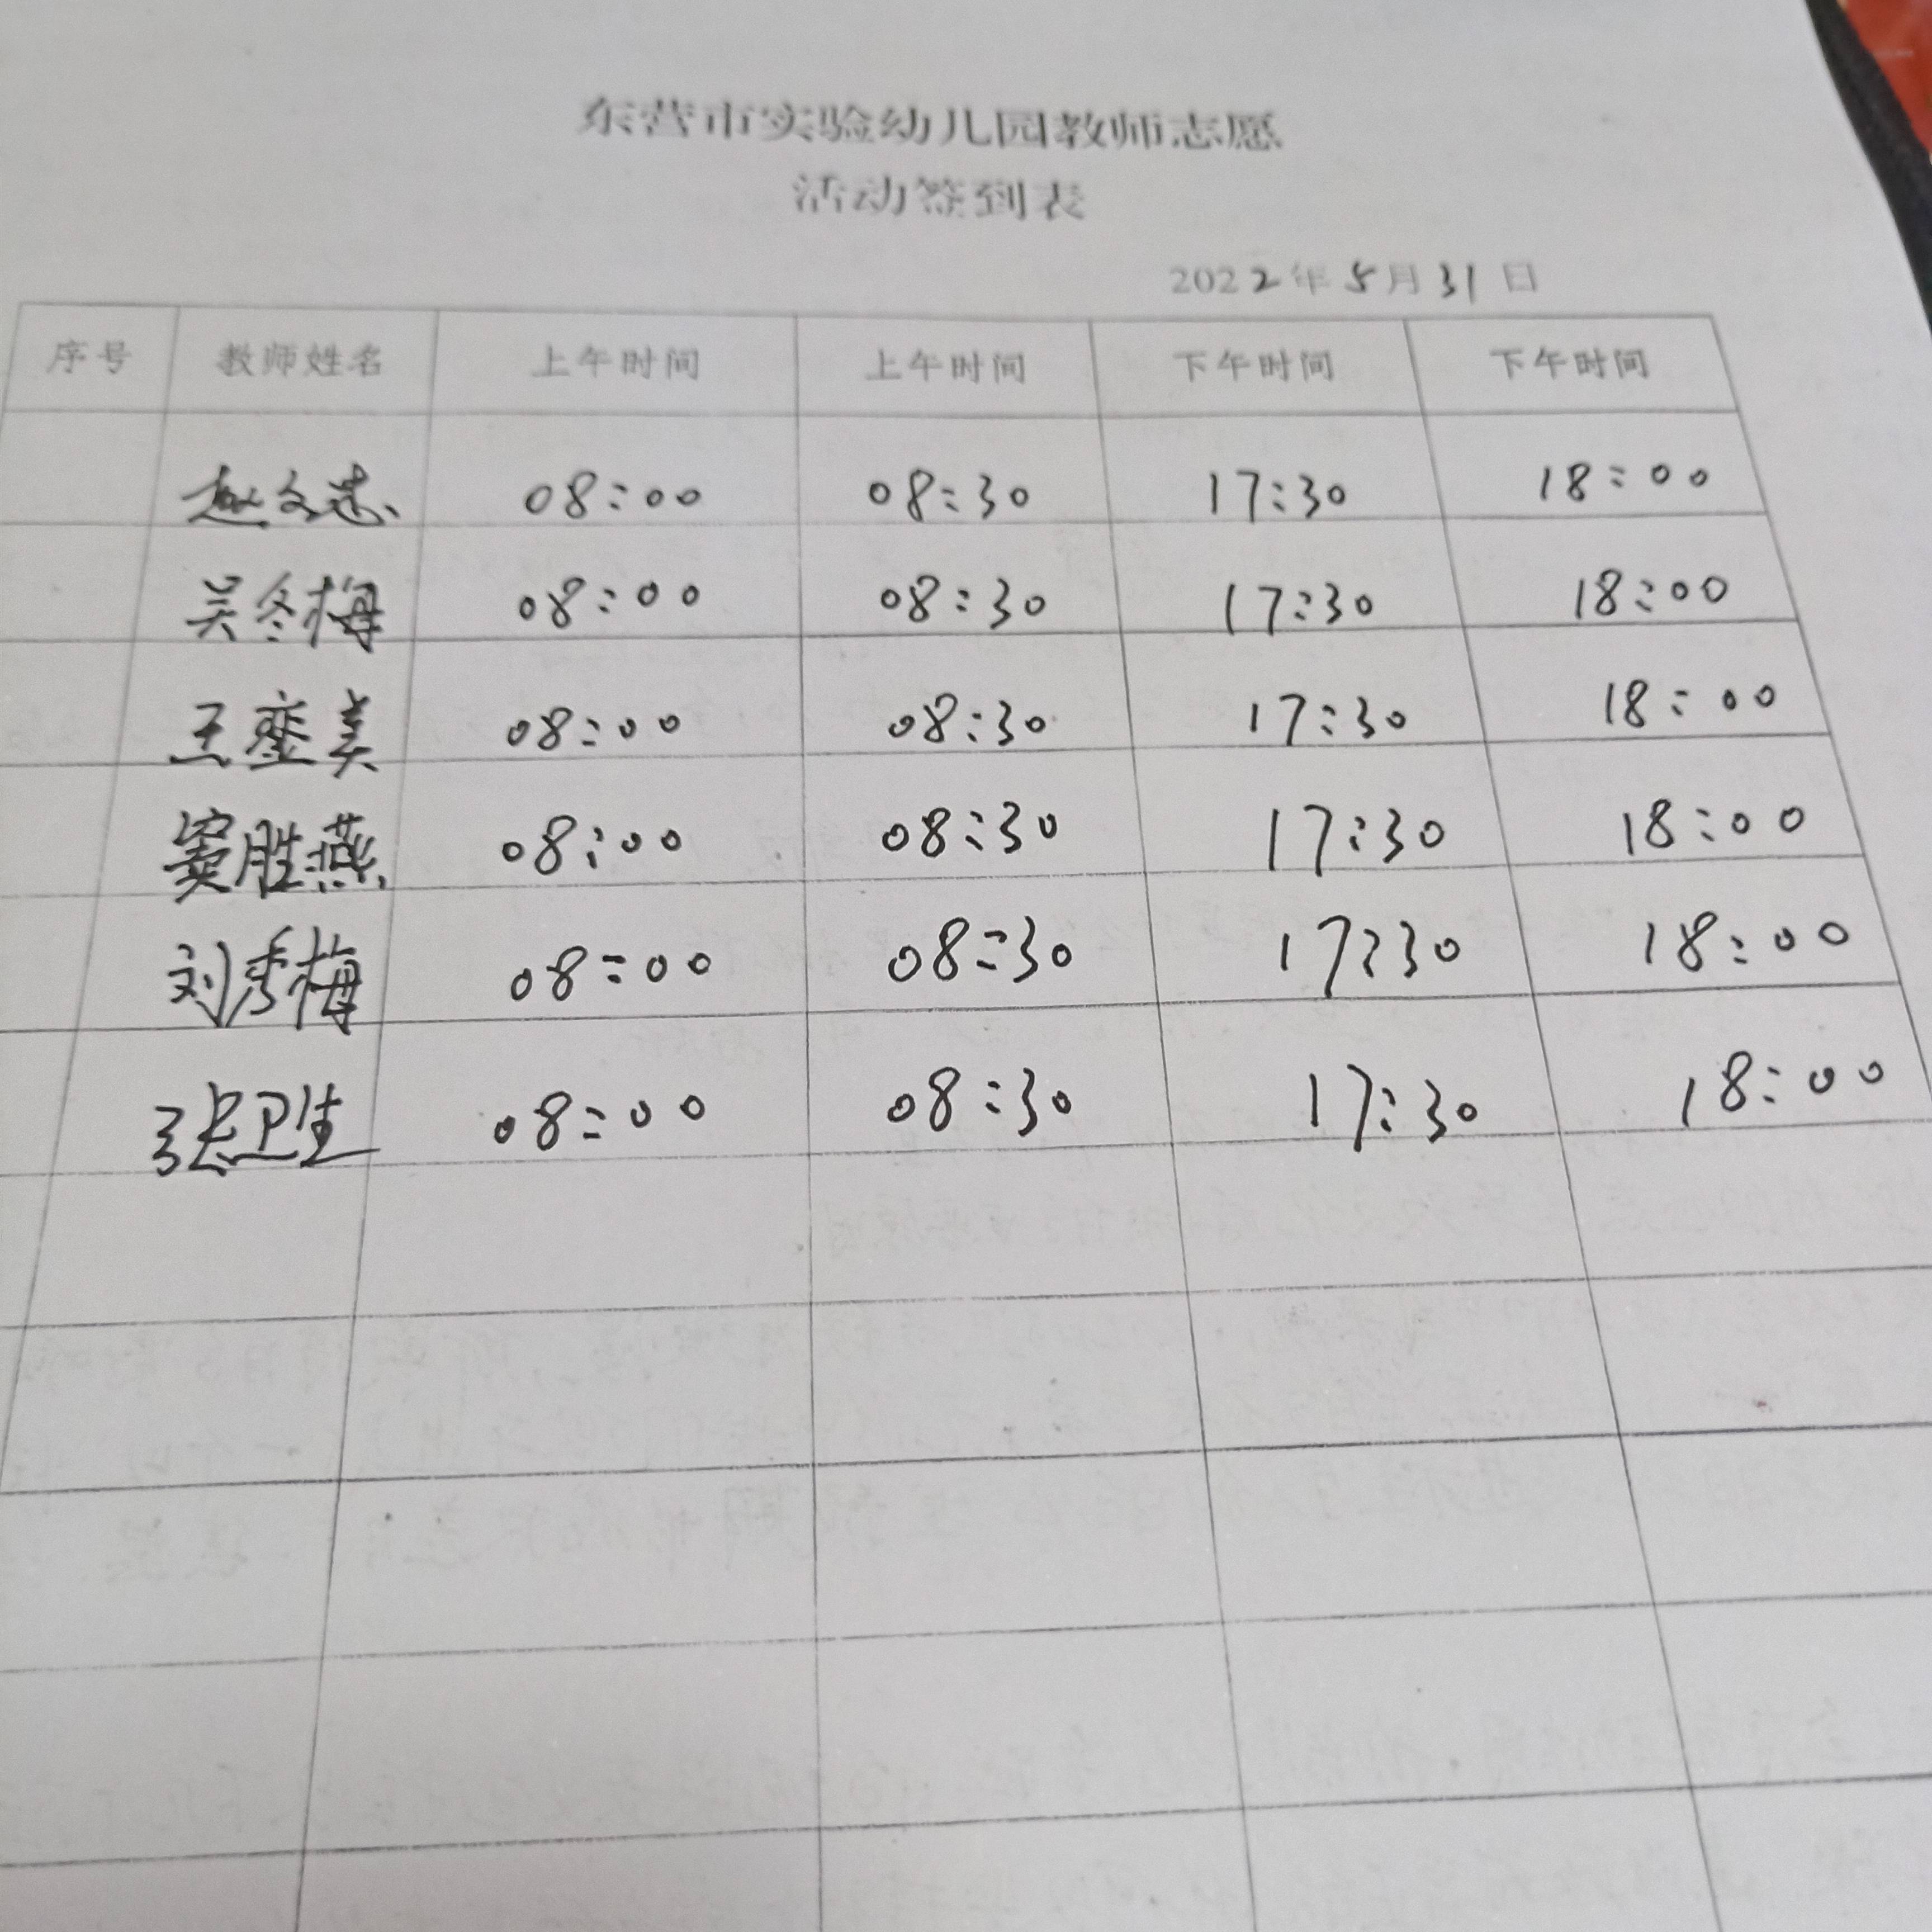 东营市实验幼儿园教师志愿
活动签到表
2022年5月31日
序号 教师姓名 上午时间 上午时间 下午时间 下午时间
赵文志 08:00 08:30 17:30 18:00
吴冬梅 08:00 08:30 17:30 18:00
王奎美 08:00 08:30 17:30 18:00
窦胜燕 08:00 08:30 17:30 18:00
刘秀梅 08:00 08:30 17:30 18:00
张卫生 08:00 08:30 17:30 18:00